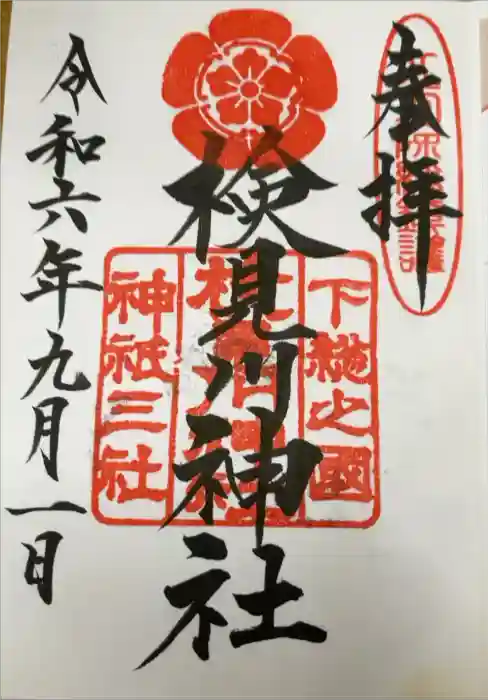 奉拝
検見川神社
令和六年九月一日
下總之國
神祇三社